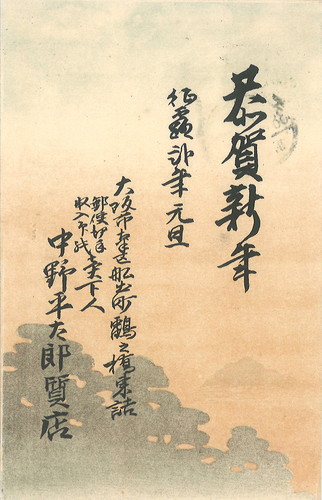 恭賀新年
征露弐年 元旦
大阪市 町鶴之橋東詰
郵便切手
収入印紙
売下人
中野平太郎質店